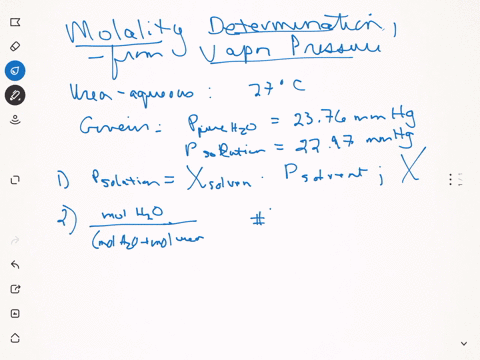 Molality Determination,
- from Vapor Pressure
Urea-aqueous: 27°C
Given: P pure H2O = 23.76 mmHg
P solution = 22.97 mmHg
1) Psolution = Xsolven · Psolvent; X
2) mol H2O #
(mol H2O + mol urea